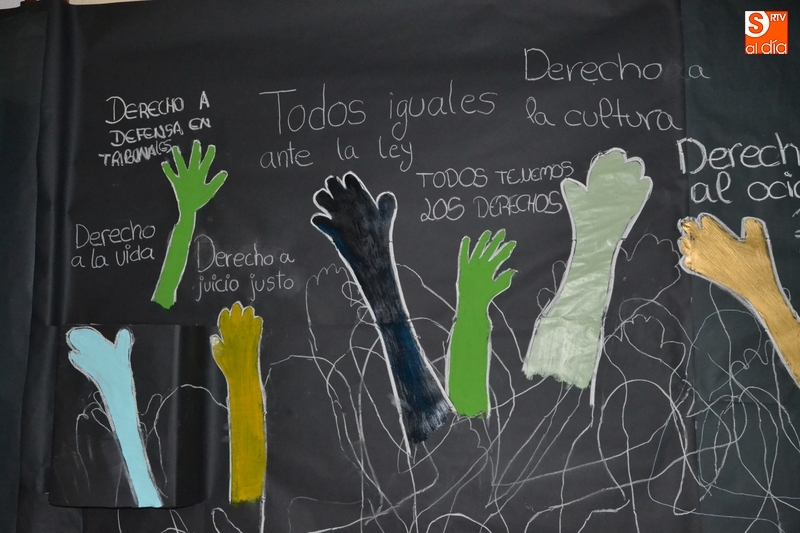 DERECHO A
DEFENSA EN
TRIBUNALES
Todos iguales
ante la ley
Derecho a
la cultura
TODOS TENEMOS
LOS DERECHOS
Derech
al ocio
Derecho
a la vida
Derecho a
juicio justo
S RTV
al día